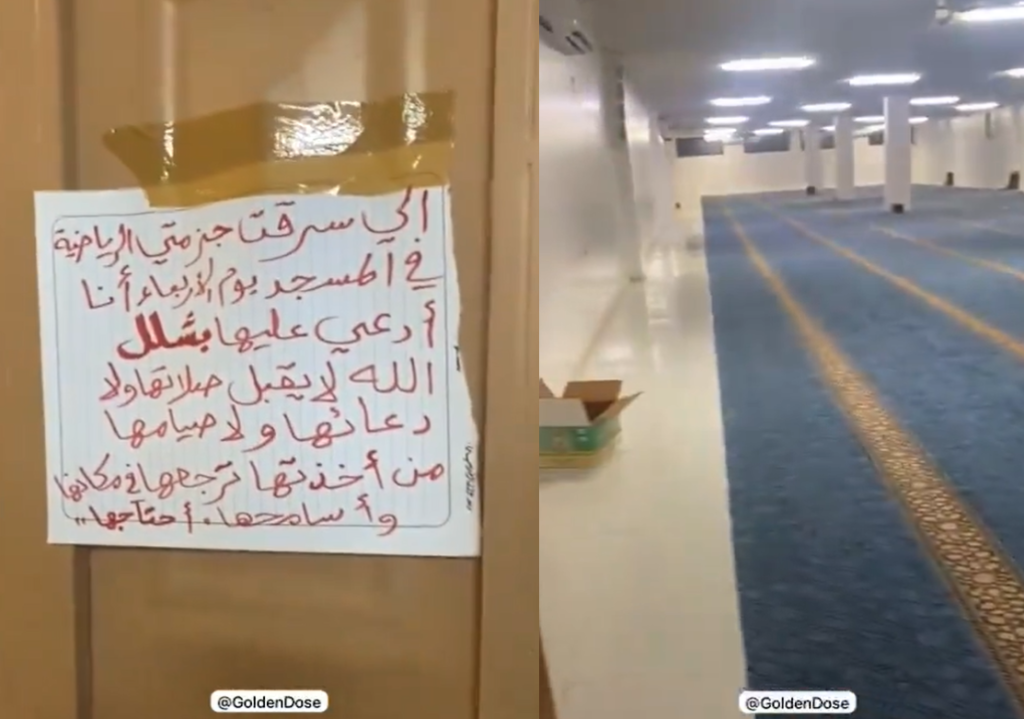 الي سرقت جزمتي الرياضية
في المسجد يوم الأربعاء أنا
أدعي عليها بشلل
الله لا يقبل صلاتها ولا
دعائها ولا صيامها
من أخذتها ترجعها في مكانها
وأسامحها. أحتاجها..
@GoldenDose
@GoldenDose